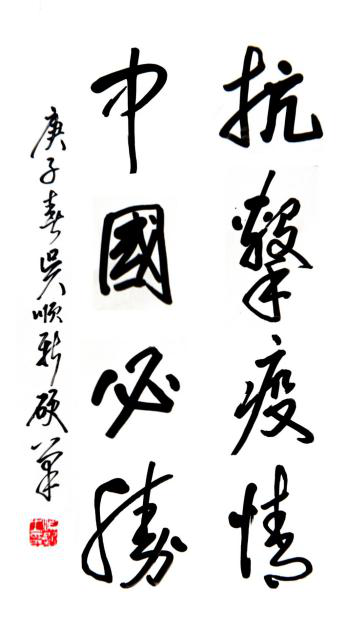 抗擊疫情
中國必勝
庚子春吳順新硬筆